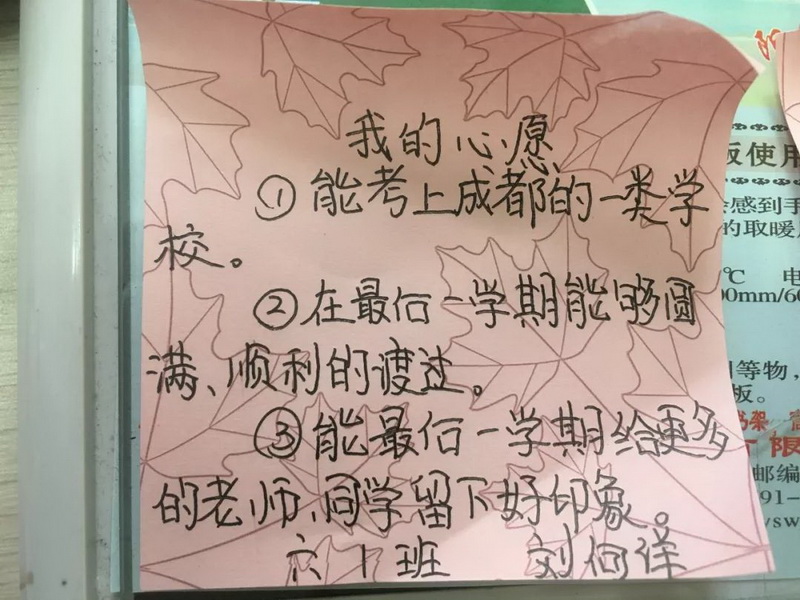 我的心愿
①能考上成都的一类学
校。
②在最后一学期能够圆
满、顺利的渡过。
③能最后一学期给更多
的老师、同学留下好印象。
六1班 刘何
板使用
感到手
的取暖
℃ 电
00mm/60
等物，
板。
书架，
限
邮编
91-
/sw